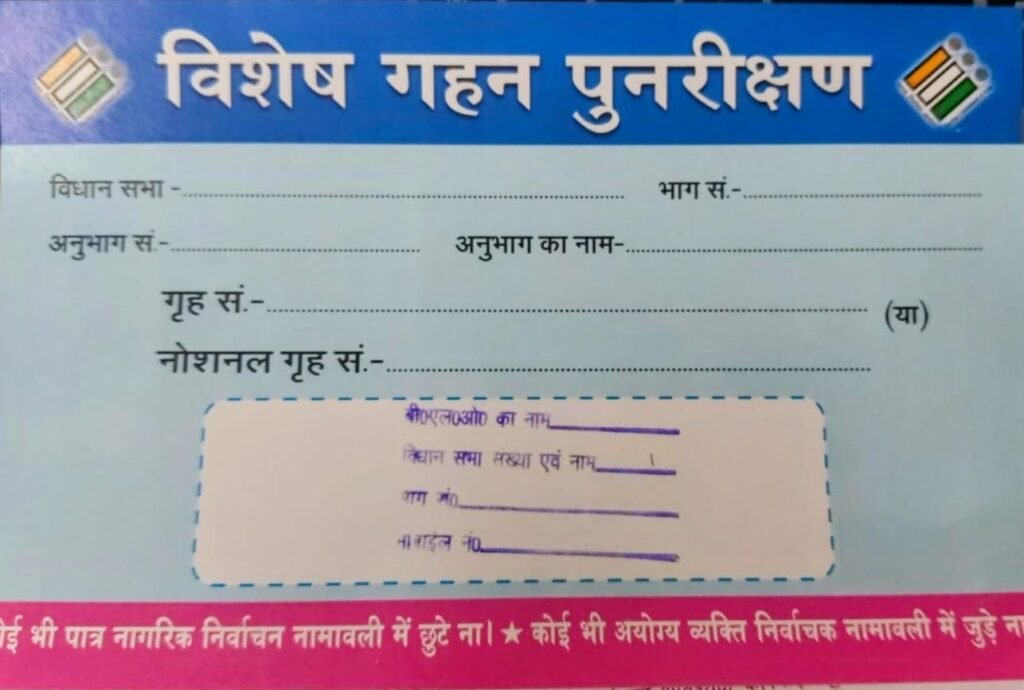 विशेष गहन पुनरीक्षण
विधान सभा - भाग सं.-
अनुभाग सं.- अनुभाग का नाम-
गृह सं.- (या)
नोशनल गृह सं.-
बी0एल0ओ0 का नाम
विधान सभा संख्या एवं नाम
भाग सं0
मोबाईल नं0
भी पात्र नागरिक निर्वाचन नामावली में छुटे ना। ★ कोई भी अयोग्य व्यक्ति निर्वाचक नामावली में जुड़े